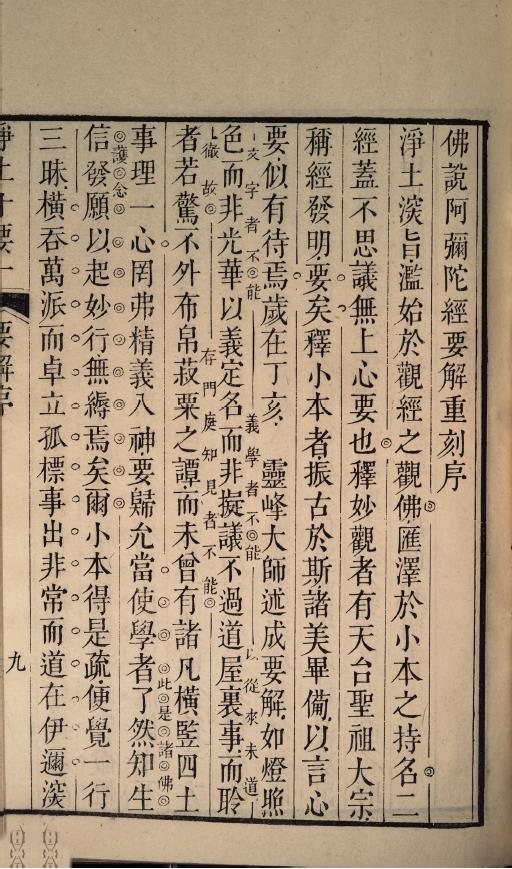 佛說阿彌陀經要解重刻序
淨土深旨濫始於觀經之觀佛匯澤於小本之持名二
經蓋不思議無上心要也釋妙觀者有天台聖祖大宗
稱經發明要矣釋小本者振古於斯諸美畢備以言心
要似有待焉歲在丁亥 靈峰大師述成要解如燈照
文字者不能 義學者不能 以從來未道
色而非光華以義定名而非擬議不過道屋裏事而聆
徹故 存門庭知見者不能
者若驚不外布帛菽粟之譚而未曾有諸凡橫豎四土
事理一心罔弗精義入神要歸允當使學者了然知生
此是諸佛
護念
信發願以起妙行無縟焉矣爾小本得是疏便覺一行
三昧橫吞萬派而卓立孤標事出非常而道在伊邇深
淨土十要一 要解序 九